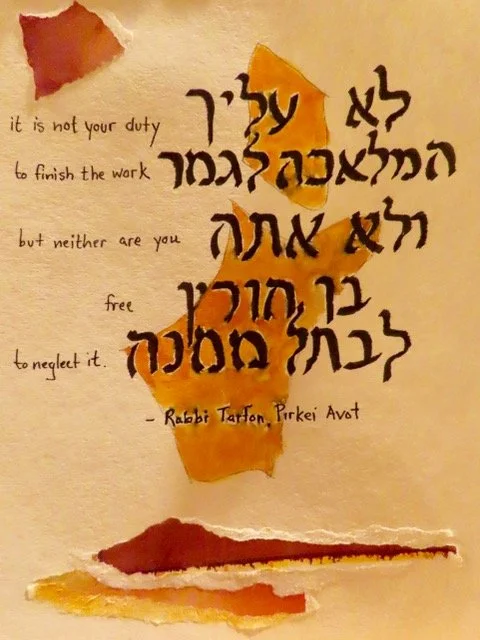 לא עליך
המלאכה לגמר
ולא אתה
בן חורין
לבתל ממנה
it is not your duty
to finish the work
but neither are you
free
to neglect it.
- Rabbi Tarfon, Pirkei Avot